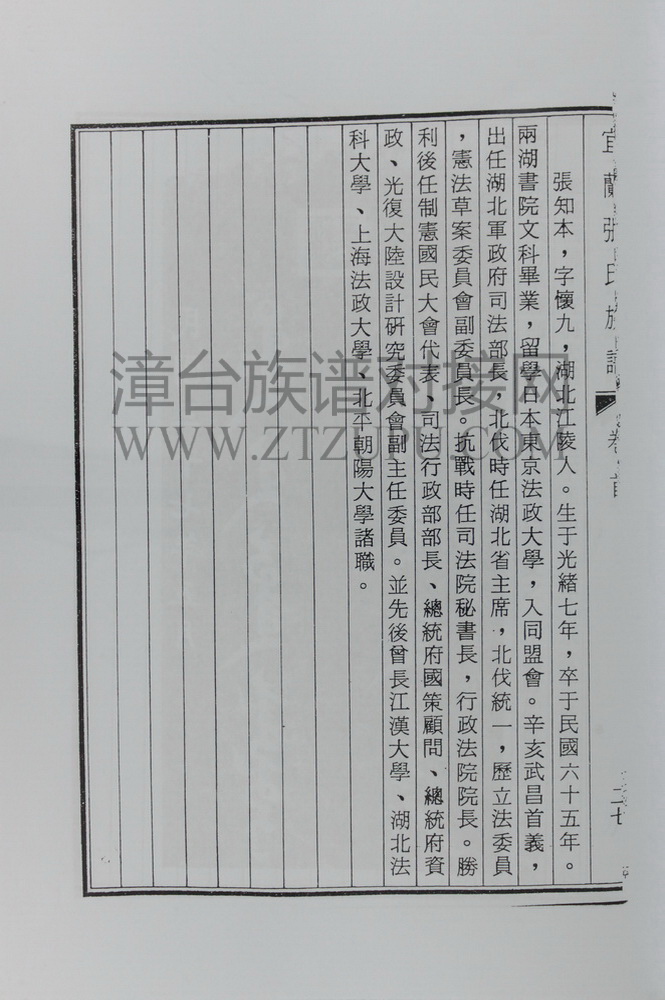 宜蘭張氏族譜 卷首
二七
張知本，字懷九，湖北江陵人。生于光緒七年，卒于民國六十五年。
兩湖書院文科畢業，留學日本東京法政大學，入同盟會。辛亥武昌首義，
出任湖北軍政府司法部長，北伐時任湖北省主席，北伐統一，歷立法委員
，憲法草案委員會副委員長。抗戰時任司法院秘書長，行政法院院長。勝
利後任制憲國民大會代表、司法行政部部長、總統府國策顧問、總統府資
政、光復大陸設計研究委員會副主任委員。並先後曾長江漢大學、湖北法
科大學、上海法政大學、北平朝陽大學諸職。
漳台族谱对接网
WWW.ZTZUPU.COM